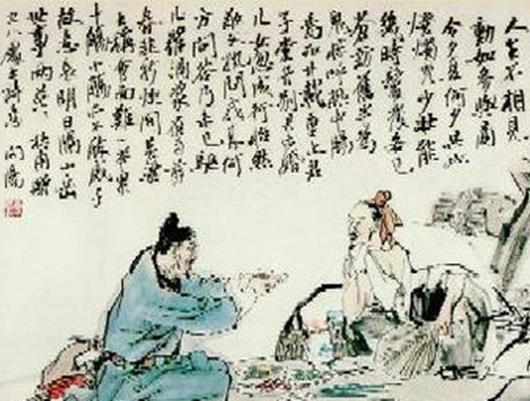 人生不相見
動如參與商
今夕是何夕共此
燈燭光少壯能
幾時鬢髮各已
蒼訪舊半為
鬼驚呼熱中腸
焉知廿載重上君
子堂昔別君未婚
兒女忽成行怡然
敬父執問我來何
方問答乃未已驅
兒羅酒漿夜雨剪
春韭新炊間黃粱
主稱會面難一舉累
十觴十觴亦不醉感子
故意長明日隔山岳
世事兩茫茫杜甫贈
衛八處士詩意